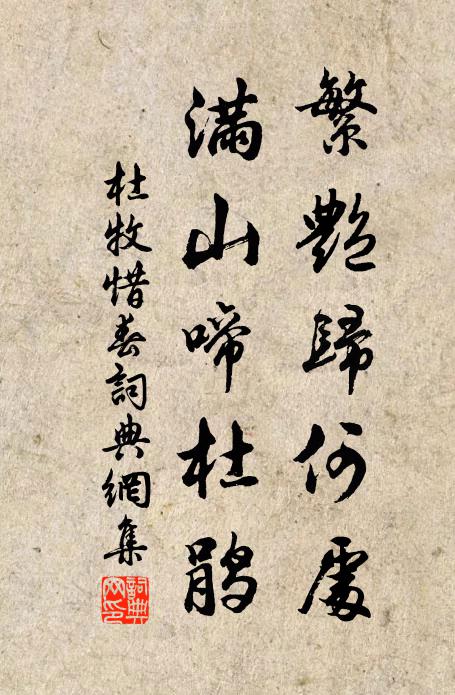 繁艷歸何處
滿山啼杜鵑
杜牧惜春詞典網集
詞典網印